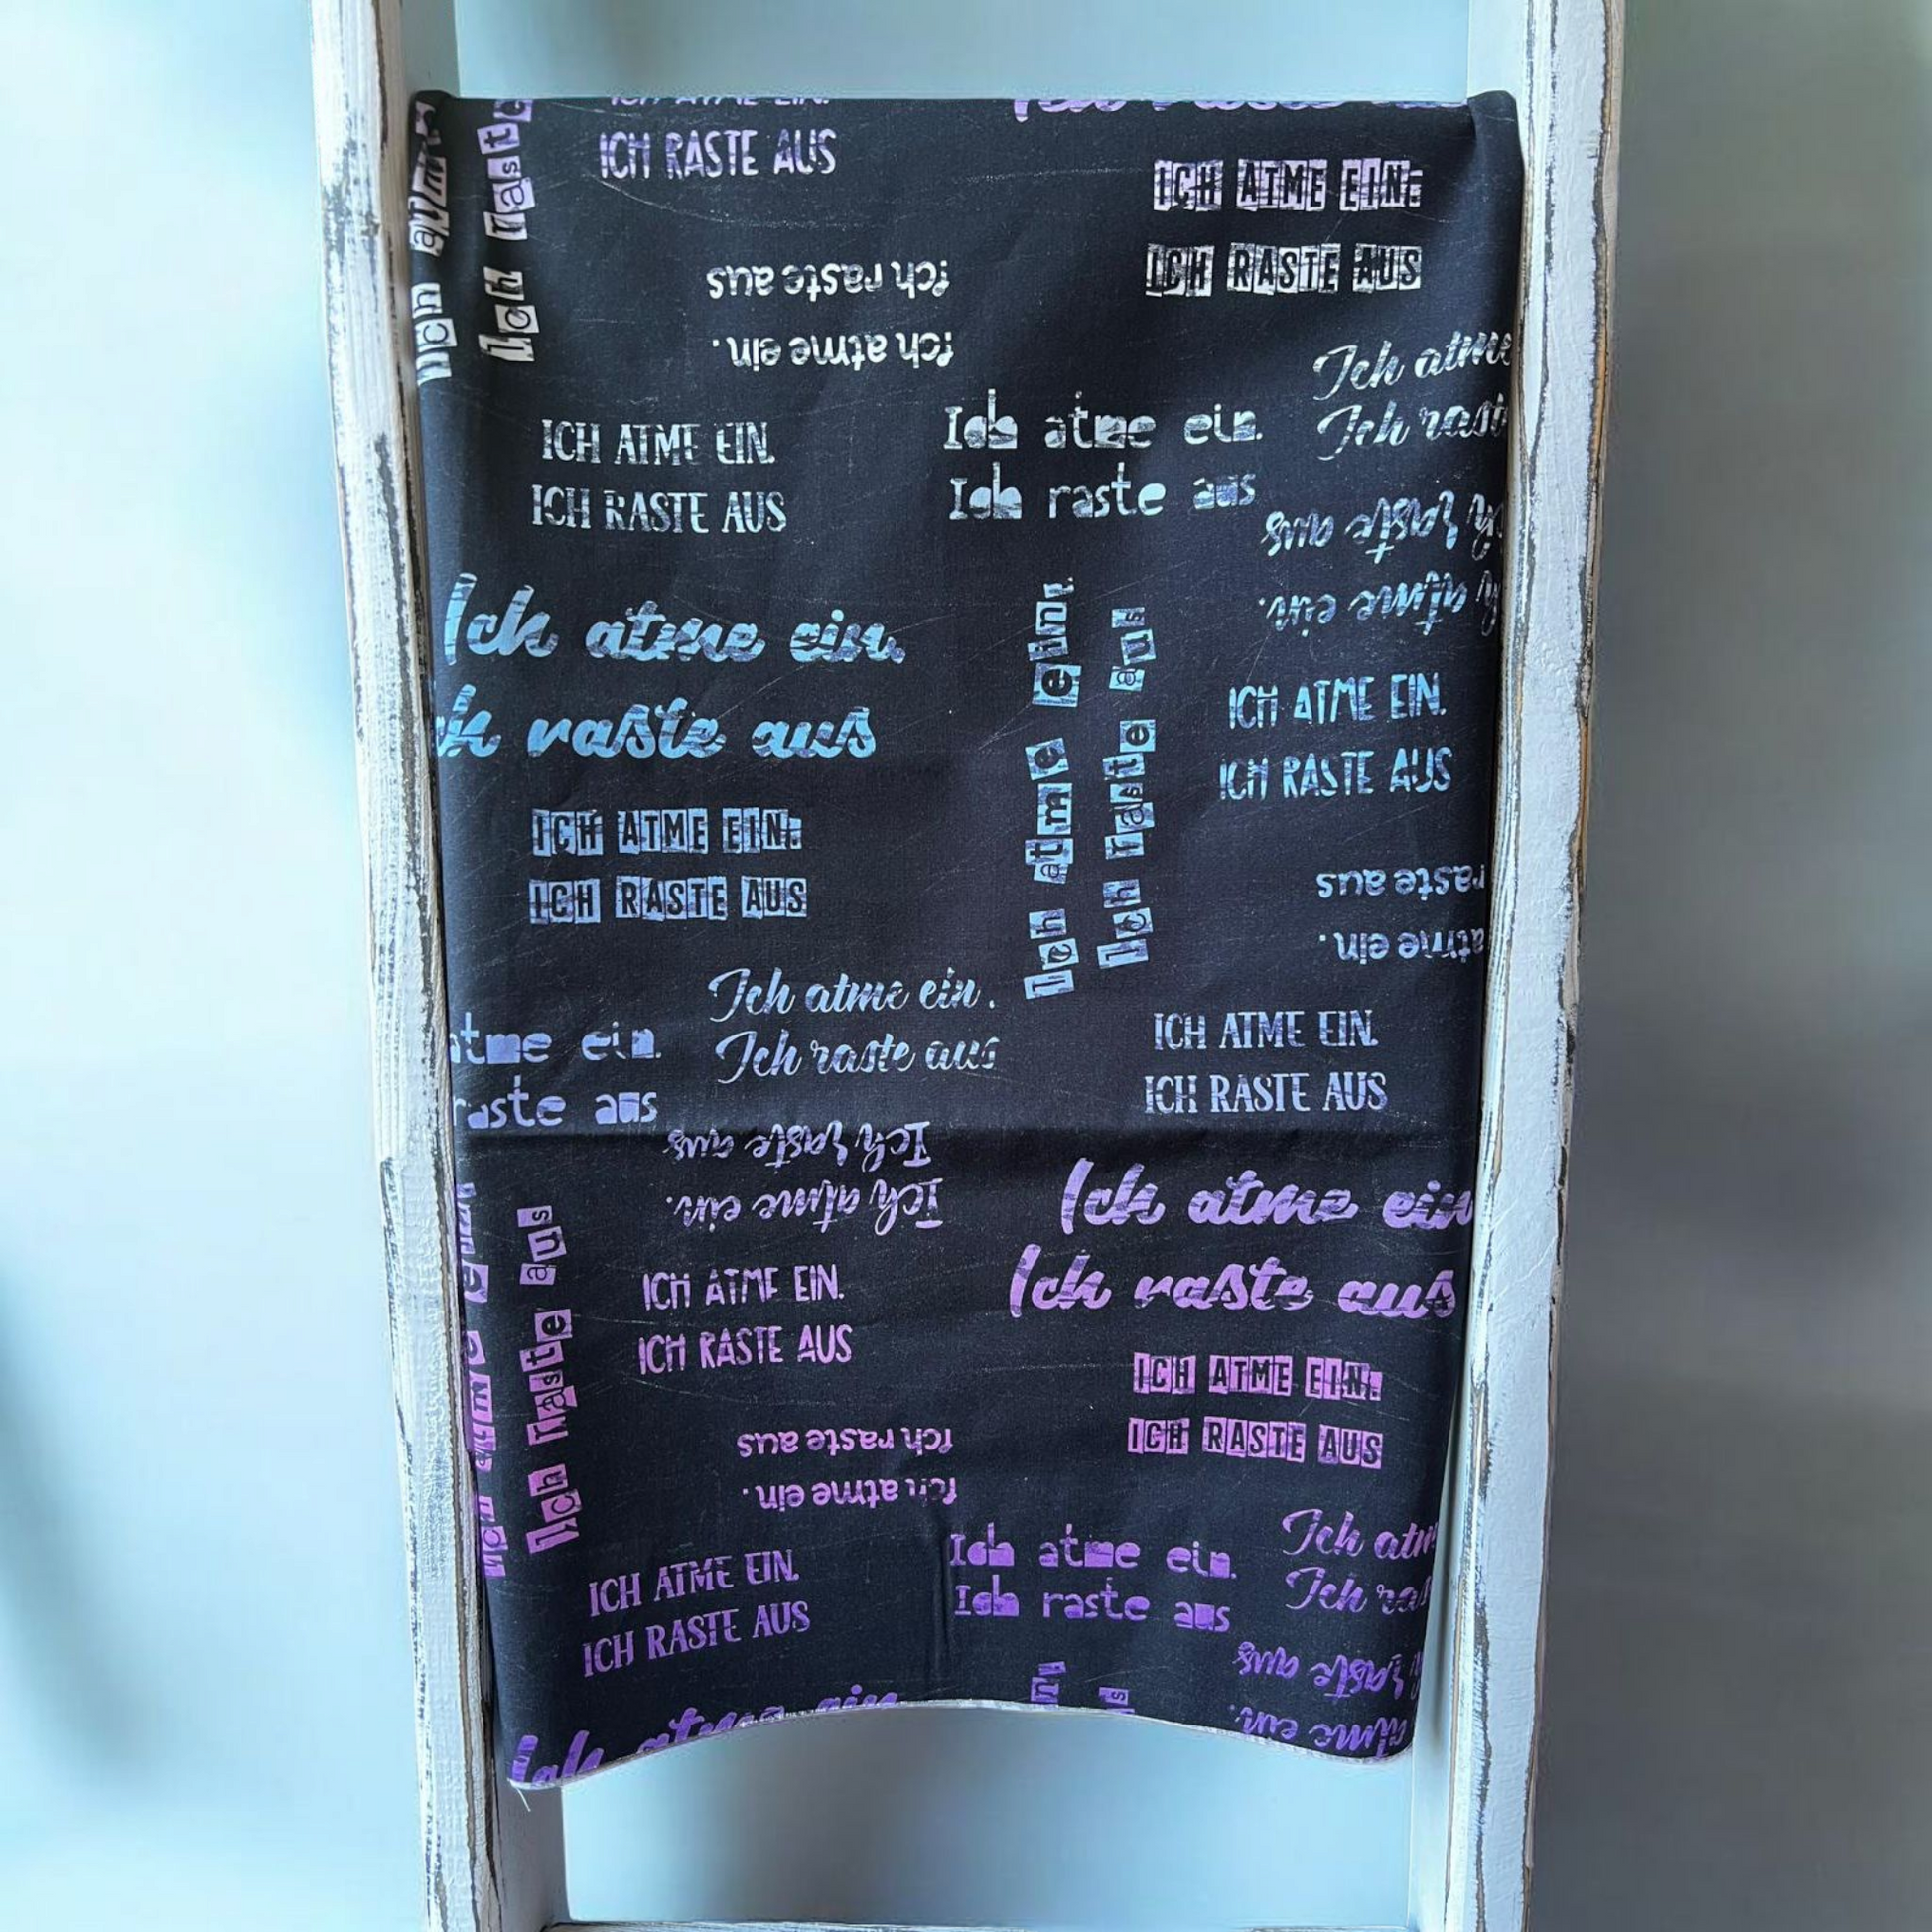 ICH RASTE AUS
Ich raste
ICH ATME EIN.
ICH RASTE AUS
Ich atme ein.
Ich raste aus
Ich atme
ICH ATME EIN.
ICH RASTE AUS
Ich atme ein.
Ich raste aus
atme ein.
raste aus
Ich atme ein.
Ich raste aus
Ich atme ein.
Ich raste aus
ICH ATME EIN.
ICH RASTE AUS
ICH ATME EIN.
ICH RASTE AUS
atme ein.
raste aus
Ich atme ein.
Ich raste aus
atme ein.
raste aus
ICH ATME EIN.
ICH RASTE AUS
Ich atme ein.
Ich raste aus
Ich atme ein
Ich raste aus
Ich raste aus
ICH ATME EIN.
ICH RASTE AUS
ICH ATME EIN.
ICH RASTE AUS
Ich atme ein.
Ich raste aus
Ich atme ein.
Ich raste aus
Ich
Ich
ICH ATME EIN.
ICH RASTE AUS
atme ein.
raste aus
Ich atme ein